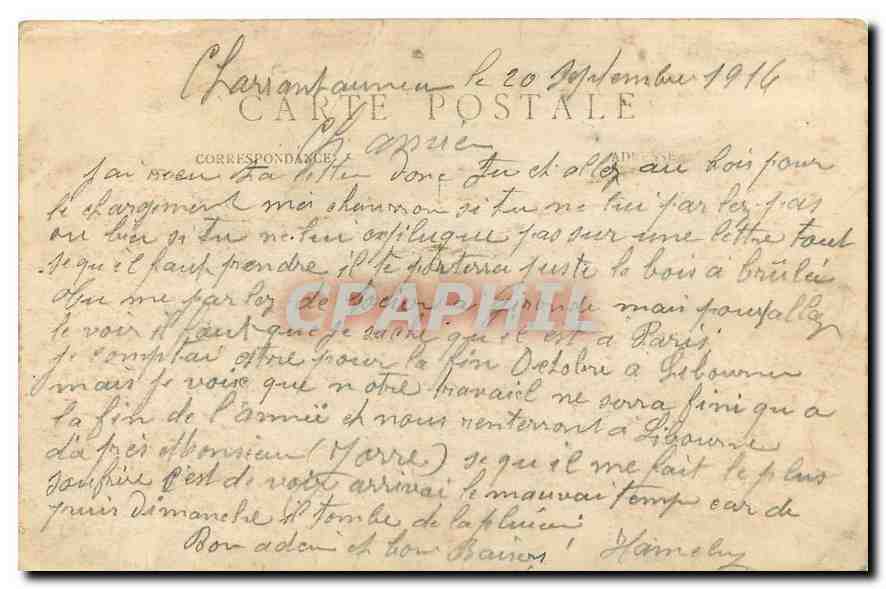 le 20 Septembre 1916
CARTE POSTALE
CORRESPONDANCE
ADRESSE
J'ai recu ta lettre donc tu et allez au bois pour
le chargement mes si tu ne lui parlez pas
ou bien si tu ne lui explique pas sur une lettre tout
se qu il faut prendre il te portera juste le bois a brûlé
tu me parlez de mais pour allez
le voir il faut que je sache qu il est a Paris
CPAPHIL
je comptai etre pour la fin Octobre a Libourne
mais je voix que notre travail ne serra fini qu a
la fin de l'année et nous renterront a Libourne
d'après Monsieur (Marre) se qu il me fait le plus
soufrire c'est de voir arrivai le mauvai temp car de
puis Dimanche il tombe de la pluie
Bon adieu et bon Baisers